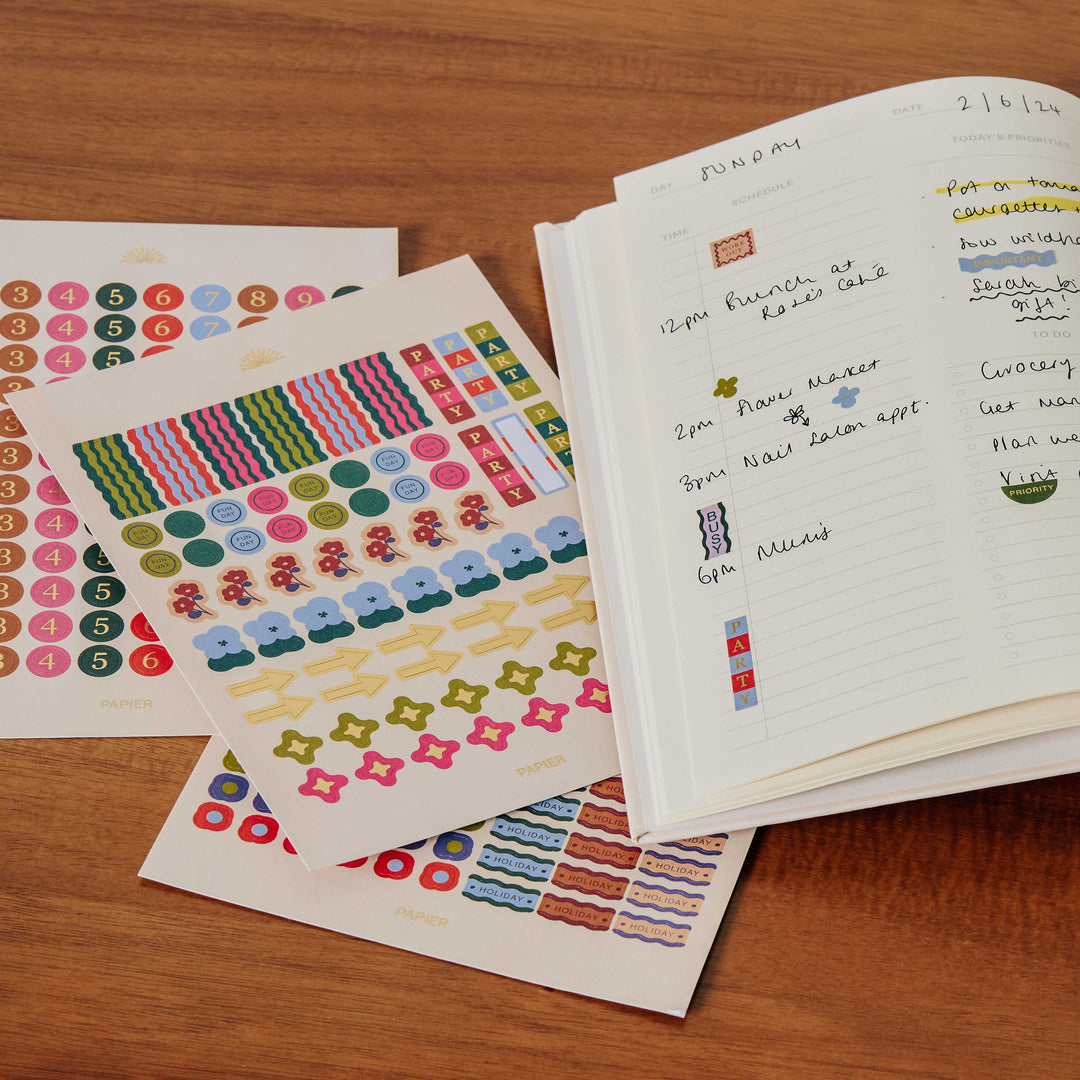 DAY SUNDAY
DATE 2/6/24
SCHEDULE
TIME
WORK OUT
12pm Brunch at
Rose's Café
2pm Flower Market
3pm Nail salon appt.
BUSY
6pm Mum's
PARTY
TODAY'S PRIORITIES
Pot on
courgettes
Sow
IMPORTANT
Sarah
gift!
TO DO
Grocery
Get
Plan
Visit
PRIORITY
3 4 5 6 7 8 9
3 4 5 6 7
3 4 5
3
3
3
3 4
3 4
3 4 5
3 4 5
3 4 5 6
3 4 5 6
PAPIER
PARTY PARTY PARTY
PARTY PARTY
FUN DAY FUN DAY FUN DAY FUN DAY FUN DAY
FUN DAY FUN DAY FUN DAY FUN DAY FUN DAY FUN DAY
PAPIER
HOLIDAY
HOLIDAY HOLIDAY
HOLIDAY HOLIDAY HOLIDAY
HOLIDAY HOLIDAY HOLIDAY
HOLIDAY HOLIDAY HOLIDAY
PAPIER